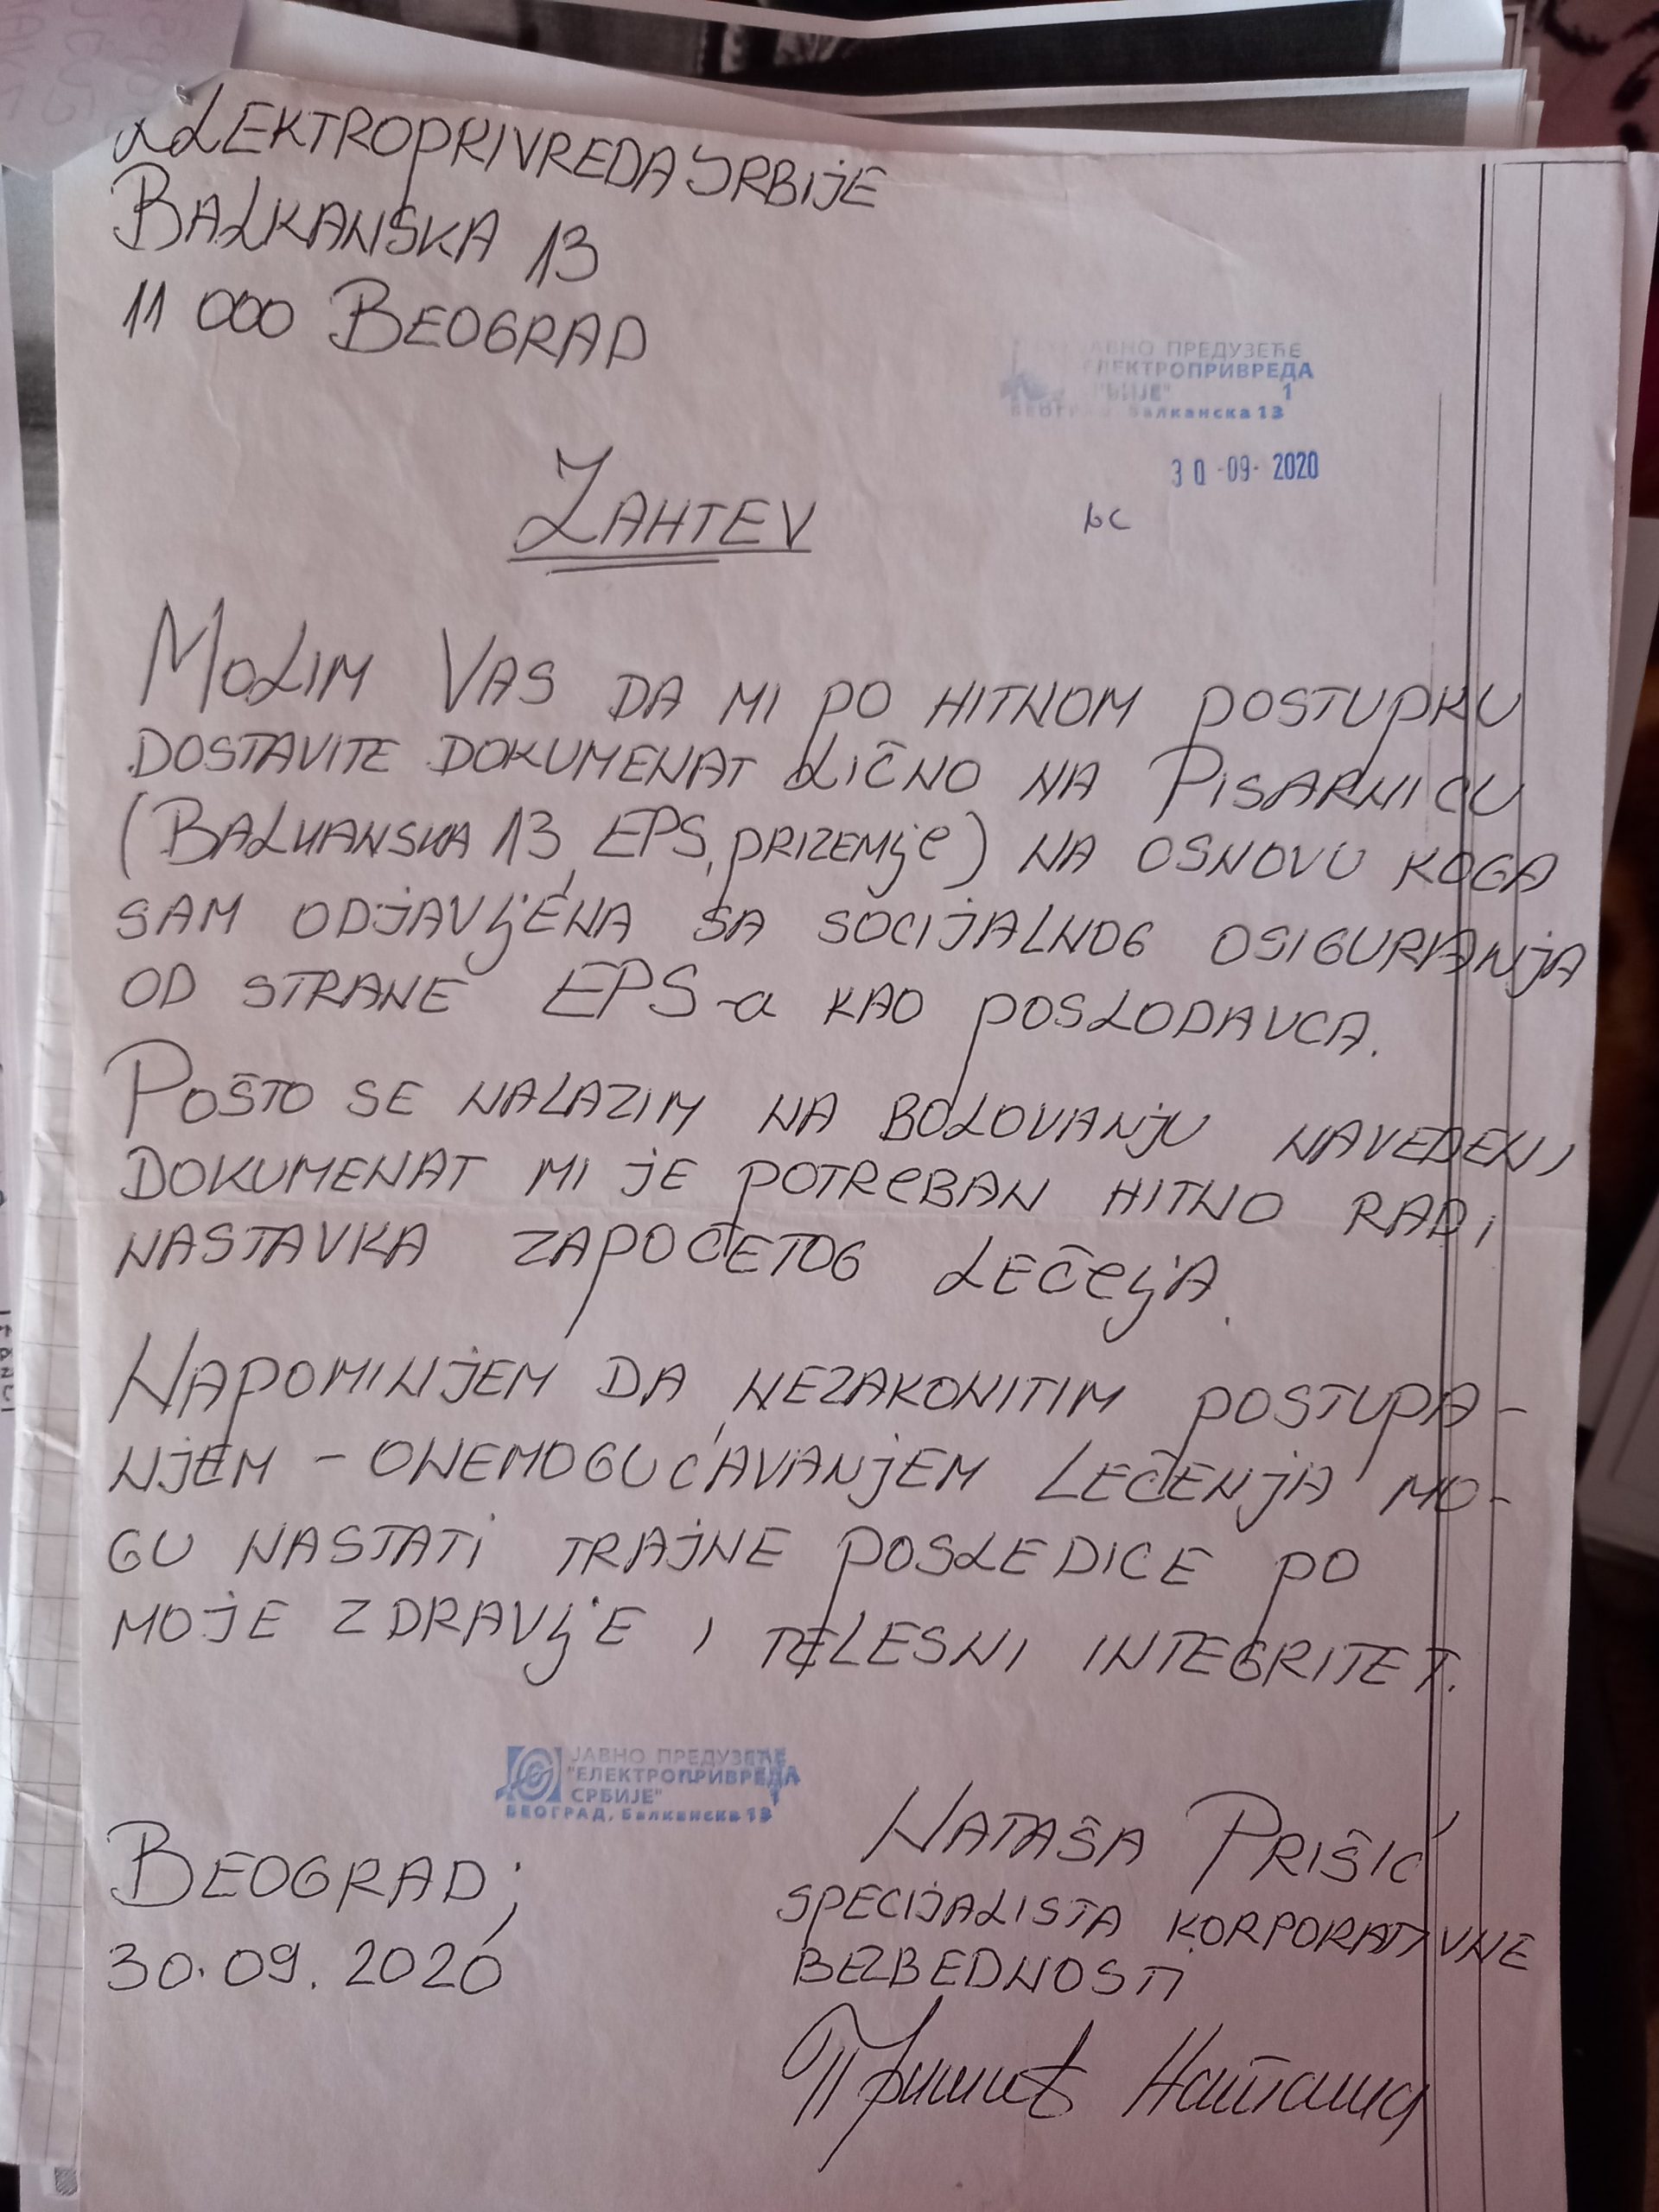 ELEKTROPRIVREDA SRBIJE
BALKANSKA 13
11 000 BEOGRAD
ЈАВНО ПРЕДУЗЕЋЕ
ЕЛЕКТРОПРИВРЕДА
СРБИЈЕ" 1
БЕОГРАД, Балканска 13
30 -09- 2020
ZAHTEV
MOLIM VAS DA MI PO HITNOM POSTUPKU
DOSTAVITE DOKUMENAT LIČNO NA PISARNICU
(BALKANSKA 13, EPS, PRIZEMlje) NA OSNOVU KOGA
SAM ODJAVljENA SA SOCIJALNOG OSIGURANJA
OD STRANE EPS-a KAO POSLODAVCA.
POŠTO SE NALAZIM NA BOLOVANJU NAVEDENI
DOKUMENAT MI JE POTReBAN HITNO RADI
NASTAVKA ZAPOČETOG LEČeljA.
NAPOMINJEM DA NEZAKONITIM POSTUPA-
NJEM - ONEMOGUĆAVANJEM LEČENJA MO-
GU NASTATI TRAJNE POSLEDICE PO
MOJE ZDRAVljE I TELESNI INTEGRITET.
ЈАВНО ПРЕДУЗЕЋЕ
"ЕЛЕКТРОПРИВРЕДА
СРБИЈЕ" 1
БЕОГРАД, Балканска 13
BEOGRAD;
30.09.2020
NATAŠA PRIŠIĆ
SPECIJALISTA KORPORATIVNE
BEZBEDNOSTI
Пришић Наташа